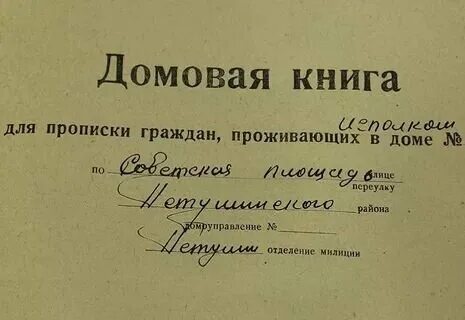 Домовая книга
Исполком
для прописки граждан, проживающих в доме №
по Советская площадь улице
переулку
Петушинского района
домоуправление №
Петушки отделение милиции